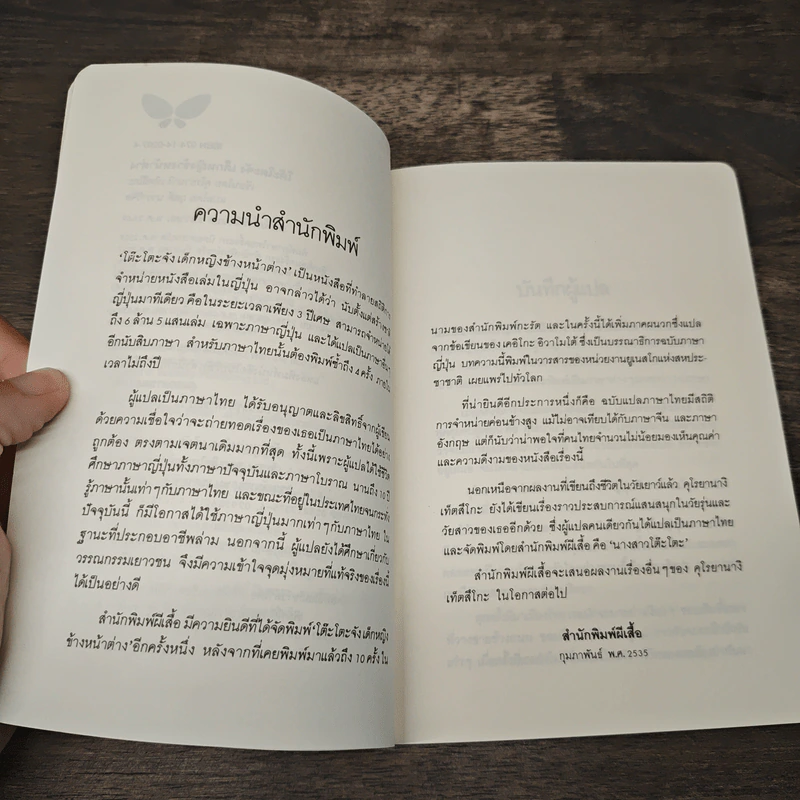 ความนำสำนักพิมพ์
'โต๊ะโตะจัง เด็กหญิงข้างหน้าต่าง' เป็นหนังสือที่ทำลายสถิติการ
จำหน่ายหนังสือเล่มในญี่ปุ่น อาจกล่าวได้ว่า นับตั้งแต่สร้างชาติ
ญี่ปุ่นมาทีเดียว คือในระยะเวลาเพียง 3 ปีเศษ สามารถจำหน่ายได้
ถึง 6 ล้าน 5 แสนเล่ม เฉพาะภาษาญี่ปุ่น และได้แปลเป็นภาษาอื่นๆ
อีกนับสิบภาษา สำหรับภาษาไทยนั้นต้องพิมพ์ซ้ำถึง 4 ครั้ง ภายใน
เวลาไม่ถึงปี
ผู้แปลเป็นภาษาไทย ได้รับอนุญาตและลิขสิทธิ์จากผู้เขียน
ด้วยความเชื่อใจว่าจะถ่ายทอดเรื่องของเธอเป็นภาษาไทยได้อย่าง
ถูกต้อง ตรงตามเจตนาเดิมมากที่สุด ทั้งนี้เพราะผู้แปลได้ใช้ชีวิต
ศึกษาภาษาญี่ปุ่นทั้งภาษาปัจจุบันและภาษาโบราณ นานถึง 10 ปี
รู้ภาษานั้นเท่าๆกับภาษาไทย และขณะที่อยู่ในประเทศไทยจนกระทั่ง
ปัจจุบันนี้ ก็มีโอกาสได้ใช้ภาษาญี่ปุ่นมากเท่าๆกับภาษาไทย ใน
ฐานะที่ประกอบอาชีพล่าม นอกจากนี้ ผู้แปลยังได้ศึกษาเกี่ยวกับ
วรรณกรรมเยาวชน จึงมีความเข้าใจจุดมุ่งหมายที่แท้จริงของเรื่องนี้
ได้เป็นอย่างดี
สำนักพิมพ์ผีเสื้อ มีความยินดีที่ได้จัดพิมพ์ 'โต๊ะโตะจัง เด็กหญิง
ข้างหน้าต่าง' อีกครั้งหนึ่ง หลังจากที่เคยพิมพ์มาแล้วถึง 10 ครั้ง ใน
นามของสำนักพิมพ์กะรัต และในครั้งนี้ได้เพิ่มภาคผนวกซึ่งแปล
จากข้อเขียนของ เคอิโกะ อิวาโมโต้ ซึ่งเป็นบรรณาธิการฉบับภาษา
ญี่ปุ่น บทความนี้พิมพ์ในวารสารของหน่วยงานยูเนสโกแห่งสหประ-
ชาชาติ เผยแพร่ไปทั่วโลก
ที่น่ายินดีอีกประการหนึ่งก็คือ ฉบับแปลภาษาไทยมีสถิติ
การจำหน่ายค่อนข้างสูง แม้ไม่อาจเทียบได้กับภาษาจีน และภาษา
อังกฤษ แต่ก็นับว่าน่าพอใจที่คนไทยจำนวนไม่น้อยมองเห็นคุณค่า
และความดีงามของหนังสือเรื่องนี้
นอกเหนือจากผลงานที่เขียนถึงชีวิตในวัยเยาว์แล้ว คุโรยานางิ
เท็ตสึโกะ ยังได้เขียนเรื่องราวประสบการณ์แสนสนุกในวัยรุ่นและ
วัยสาวของเธออีกด้วย ซึ่งผู้แปลคนเดียวกันได้แปลเป็นภาษาไทย
และจัดพิมพ์โดยสำนักพิมพ์ผีเสื้อ คือ 'นางสาวโต๊ะโตะ'
สำนักพิมพ์ผีเสื้อจะเสนอผลงานเรื่องอื่นๆของ คุโรยานางิ
เท็ตสึโกะ ในโอกาสต่อไป
สำนักพิมพ์ผีเสื้อ
กุมภาพันธ์ พ.ศ. 2535